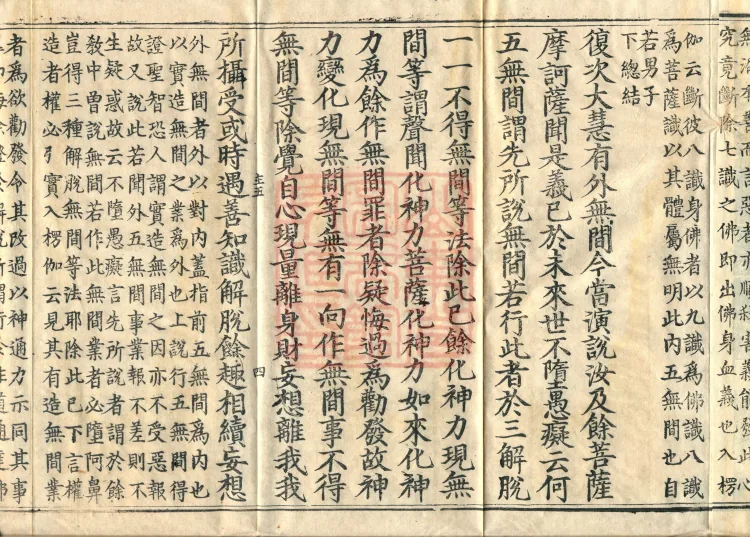 究竟斷除七識之佛即出佛身血義也入楞
伽云斷彼八識身佛者以九識為佛識八識
為菩薩識以其體屬無明此內五無間也自
若男子
下總結
復次大慧有外無間今當演說汝及餘菩薩
摩訶薩聞是義已於未來世不墮愚癡云何
五無間謂先所說無間若行此者於三解脫
一一不得無間等法除此已餘化神力現無
間等謂聲聞化神力菩薩化神力如來化神
力為餘作無間罪者除疑悔過為勸發故神
力變化現無間等無有一向作無間事不得
無間等除覺自心現量離身財妄想離我我
四
所攝受或時遇善知識解脫餘趣相續妄想
外無間者外以對內蓋指前五無間為內也
以實造無間之業為外也上說行五無間得
證聖智恐人謂實造無間之因亦不受惡報
故又說此若聞外五無間事業報不差則不
生疑惑故云不墮愚癡言先所說者謂於餘
教中曾說無間若作此無間業者必墮阿鼻
豈得三種解脫無間等法耶除此已下言權
造者權必引實入楞伽云見其有造無間業
者為欲勸發令其改過以神通力示同其事